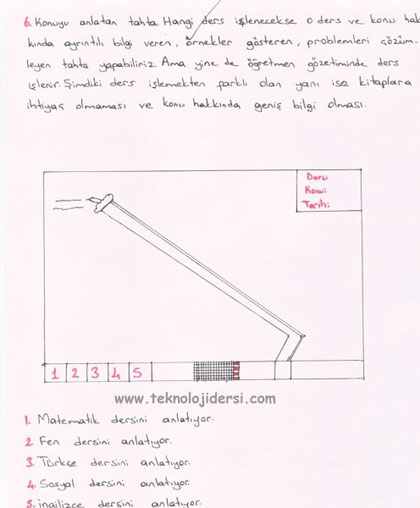 6. Konuyu anlatan tahta. Hangi ders işlenecekse o ders ve konu hak-
kında ayrıntılı bilgi veren, örnekler gösteren, problemleri çözüm-
leyen tahta yapabiliriz. Ama yine de öğretmen gözetiminde ders
işlenir. Şimdiki ders işlemekten farklı olan yanı ise kitaplara
ihtiyaç olmaması ve konu hakkında geniş bilgi olması.
Dersi
Konu:
Tarihi:
1 2 3 4 5
www.teknolojidersi.com
1. Matematik dersini anlatıyor.
2 Fen dersini anlatıyor.
3. Türkçe dersini anlatıyor.
4. Sosyal dersini anlatıyor.
5. ingilizce dersini anlatıyor.